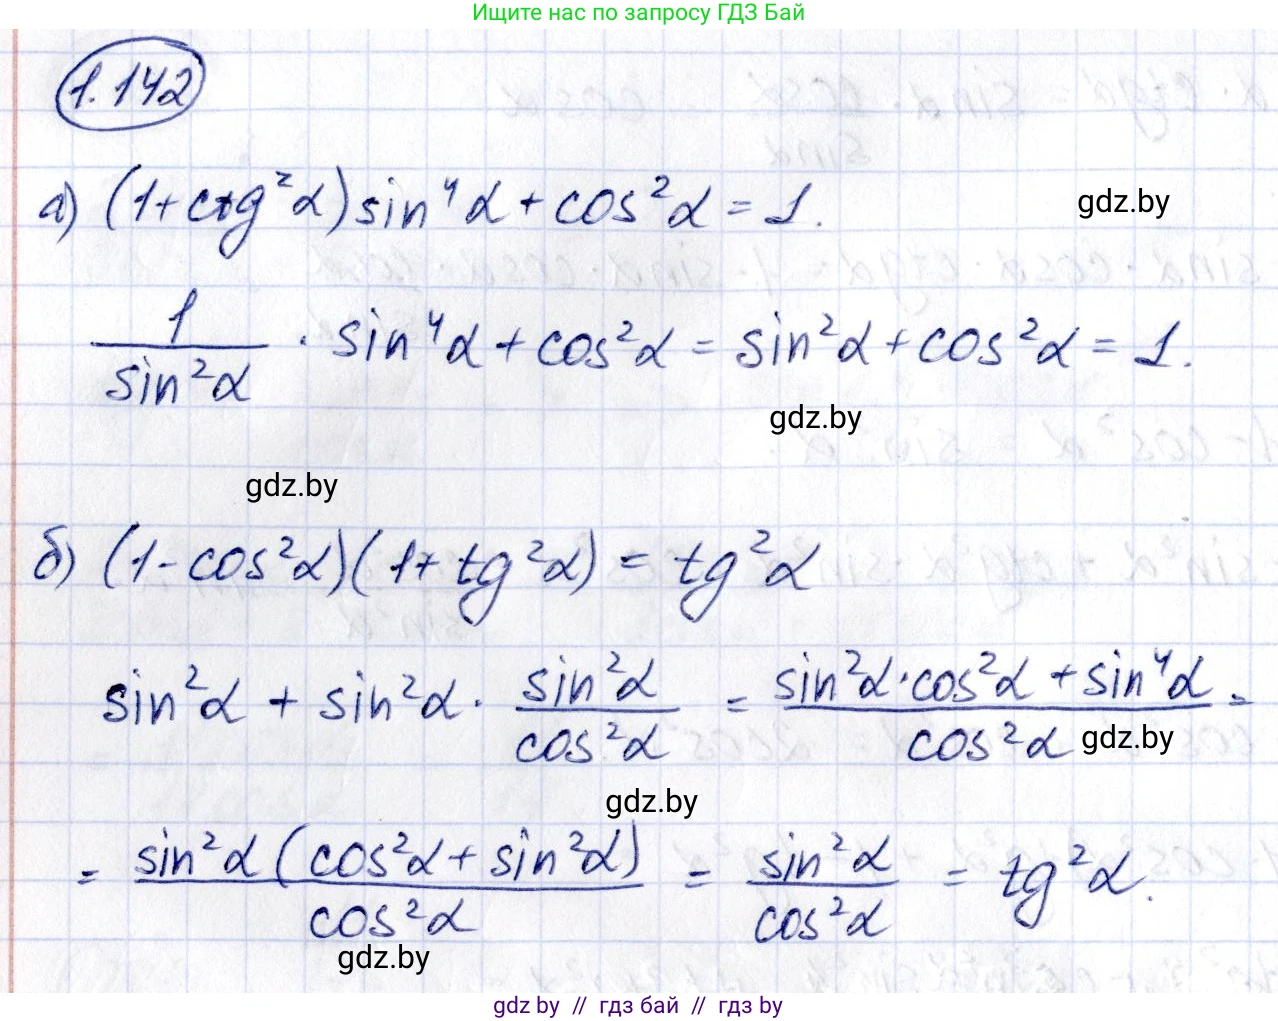 Ищите нас по запросу ГДЗ Бай
1.142
а) (1+ctg²α)sin⁴α+cos²α=1.
gdz.by
1/sin²α · sin⁴α+cos²α = sin²α+cos²α = 1.
gdz.by
gdz.by
б) (1-cos²α)(1+tg²α) = tg²α
sin²α + sin²α · sin²α/cos²α = (sin²α·cos²α+sin⁴α)/cos²α =
gdz.by
gdz.by
= sin²α(cos²α+sin²α)/cos²α = sin²α/cos²α = tg²α.
gdz.by
gdz by // гдз бай // gdz by